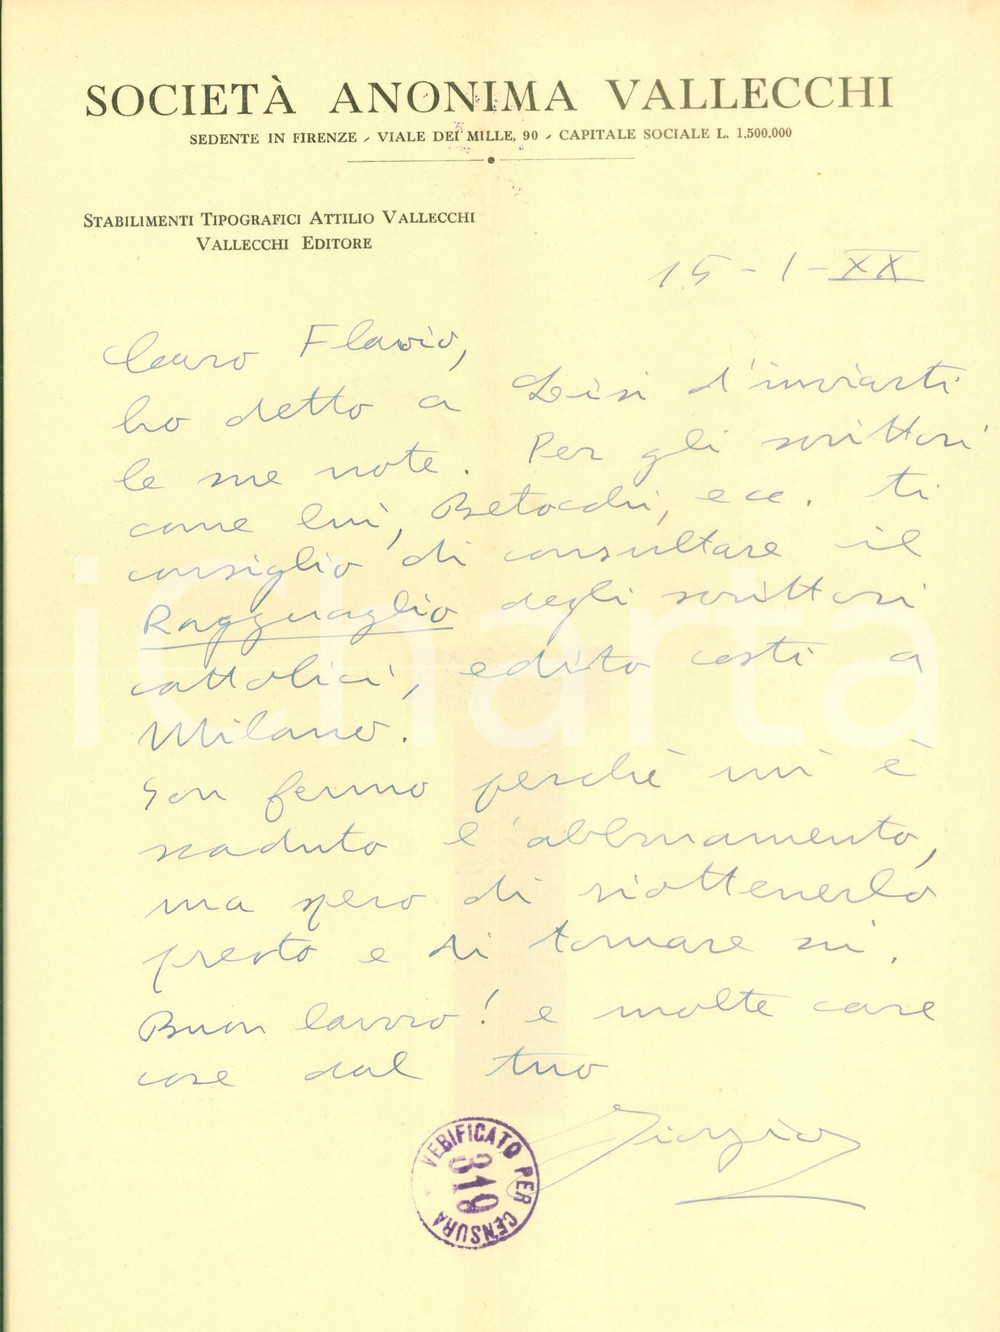 SOCIETÀ ANONIMA VALLECCHI
SEDENTE IN FIRENZE - VIALE DEI MILLE, 90 - CAPITALE SOCIALE L. 1.500.000
STABILIMENTI TIPOGRAFICI ATTILIO VALLECCHI
VALLECCHI EDITORE
15-1-XX
Caro Flavio,
ho detto a Lisi d'inviarti
le sue note. Per gli scrittori
come lui, Betocchi, ecc. ti
consiglio di consultare il
Ragguaglio degli scrittori
cattolici, edito costì a
Milano.
Son fermo perchè mi è
scaduto l'abbonamento,
ma spero di riottenerlo
presto e di tornare su.
Buon lavoro! e molte care
cose dal tuo
Giorgio
VERIFICATO PER CENSURA
319
iCharta